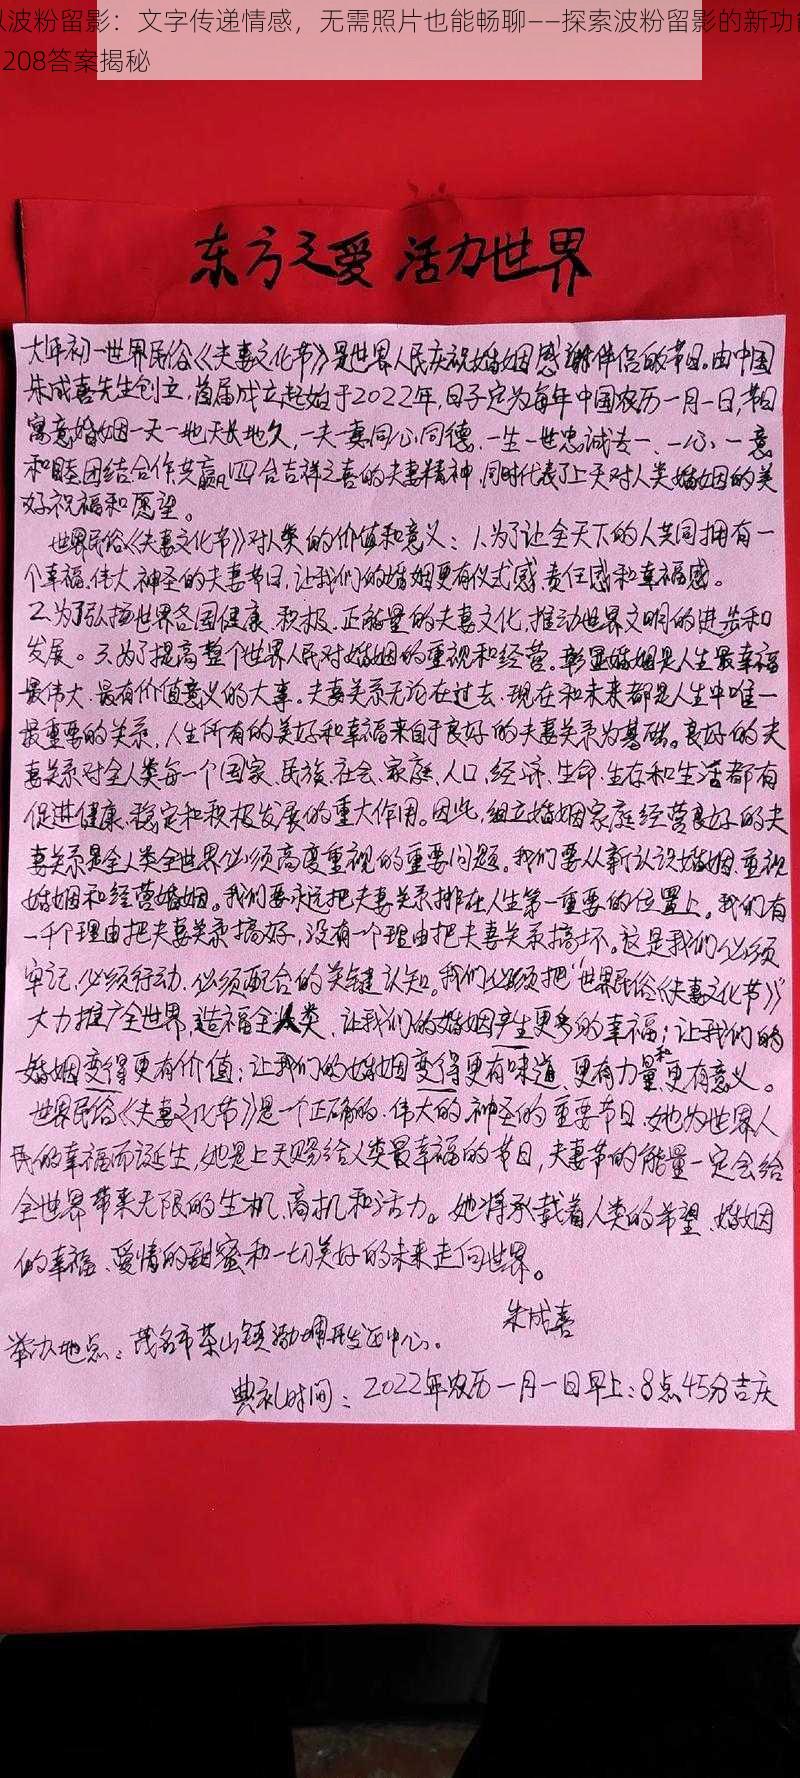 波粉留影：文字传递情感，无需照片也能畅聊——探索波粉留影的新功
208答案揭秘
东方之爱 活力世界
大年初一世界民俗《夫妻文化节》是世界人民庆祝婚姻感谢伴侣的节日。由中国
朱成喜先生创立，首届成立起始于2022年，日子定为每年中国农历一月一日，节日
寓意婚姻一天一地天长地久，一夫一妻同心同德、一生一世忠诚专一、一心一意
和睦团结合作共赢四合吉祥之喜的夫妻精神，同时代表了上天对人类婚姻的美
好祝福和愿望。
世界民俗《夫妻文化节》对人类的价值和意义：1.为了让全天下的人共同拥有一
个幸福、伟大、神圣的夫妻节日，让我们的婚姻更有仪式感、责任感和幸福感。
2.为了弘扬世界各国健康、积极、正能量的夫妻文化，推动世界文明的进步和
发展。3.为了提高整个世界人民对婚姻的重视和经营。彰显婚姻是人生最幸福
最伟大、最有价值意义的大事。夫妻关系无论在过去、现在和未来都是人生中唯一
最重要的关系，人生所有的美好和幸福来自于良好的夫妻关系为基础。良好的夫
妻关系对全人类每一个国家、民族、社会、家庭、人口、经济、生命、生存和生活都有
促进健康、稳定和积极发展的重大作用。因此，组立婚姻家庭经营良好的夫
妻关系是全人类全世界必须高度重视的重要问题。我们要从新认识婚姻、重视
婚姻和经营婚姻。我们要永远把夫妻关系排在人生第一重要的位置上。我们有
一千个理由把夫妻关系搞好，没有一个理由把夫妻关系搞坏。这是我们必须
牢记、必须行动、必须配合的关键认知。我们必须把“世界民俗《夫妻文化节》”
大力推广全世界，造福全人类，让我们的婚姻产生更多的幸福；让我们的
婚姻变得更有价值；让我们的婚姻变得更有味道、更有力量和更有意义。
世界民俗《夫妻文化节》是一个正确的、伟大的、神圣的重要节日，她为世界人
民的幸福而诞生，她是上天赐给人类最幸福的节日，夫妻节的能量一定会给
全世界带来无限的生机、商机和活力。她将承载着人类的希望、婚姻
的幸福、爱情的甜蜜和一切美好的未来走向世界。
朱成喜
举办地点：茂名市茶山镇开发西中心。
典礼时间：2022年农历一月一日早上：8点45分吉庆